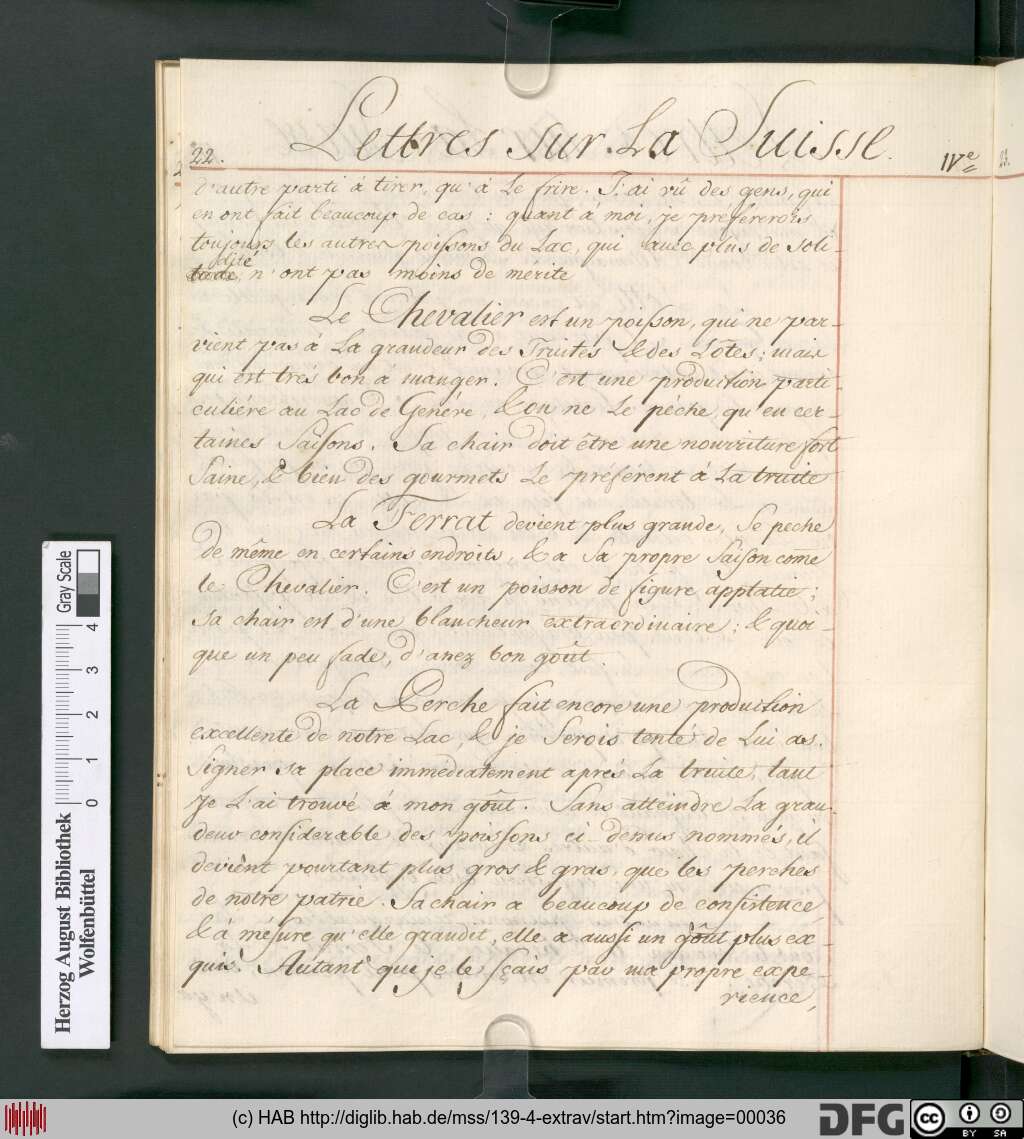 22. Lettres sur La Suisse. IVe
d'autre parti à tirer, qu'à le frire. J'ai vû des gens, qui
en ont fait beaucoup de cas : quant à moi, je prefererois
toujours les autres poissons du Lac, qui avec plus de soli-
dité
n'ont pas moins de mérite
Le Chevalier est un poisson, qui ne par-
vient pas à La grandeur des Truites & des Lôtes; mais
qui est trés bon à manger. C'est une production parti-
culiére au Lac de Genéve, & on ne Le pêche, qu'en cer-
taines Saisons. Sa chair doit être une nourriture fort
Saine, & bien des gourmets Le préférent à La truite
La Ferrat devient plus grande, Se peche
de même en certains endroits, & a Sa propre Saison come
le Chevalier. C'est un poisson de figure applatie;
sa chair est d'une blancheur extraordinaire; & quoi-
que un peu fade, d'assez bon goût.
La Perche fait encore une production
excellente de notre Lac, & je Serois tenté de Lui as-
signer sa place immédiatement aprés La truite, tant
je L'ai trouvé à mon goût. Sans atteindre La gran-
deur considerable des poissons ci dessus nommés, il
devient pourtant plus gros & gras, que les perches
de notre patrie. Sa chair a beaucoup de consistence,
& à mésure qu'elle grandit, elle a aussi un goût plus ex-
quis. Autant que je le sçais par ma propre expe-
rience,
Herzog August Bibliothek
Wolfenbüttel
0 1 2 3 4
Gray Scale
(c) HAB http://diglib.hab.de/mss/139-4-extrav/start.htm?image=00036
DFG
cc BY SA